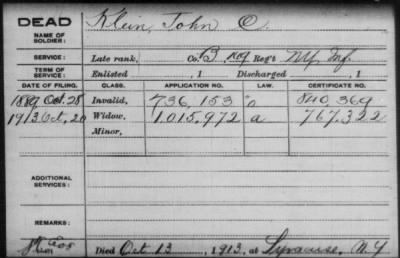 DEAD
NAME OF SOLDIER: Klein, John O.
SERVICE: Late rank, Co. B 149 Reg't N.Y. Inf.
TERM OF SERVICE: Enlisted , 1 Discharged , 1
DATE OF FILING. CLASS. APPLICATION NO. LAW. CERTIFICATE NO.
1889 Oct. 28 Invalid, 736,153 840,369
1913 Oct, 20 Widow, 1,015,972 a 767,322
Minor,
ADDITIONAL SERVICES:
REMARKS:
Died Oct 13, 1913, at Syracuse, N.Y